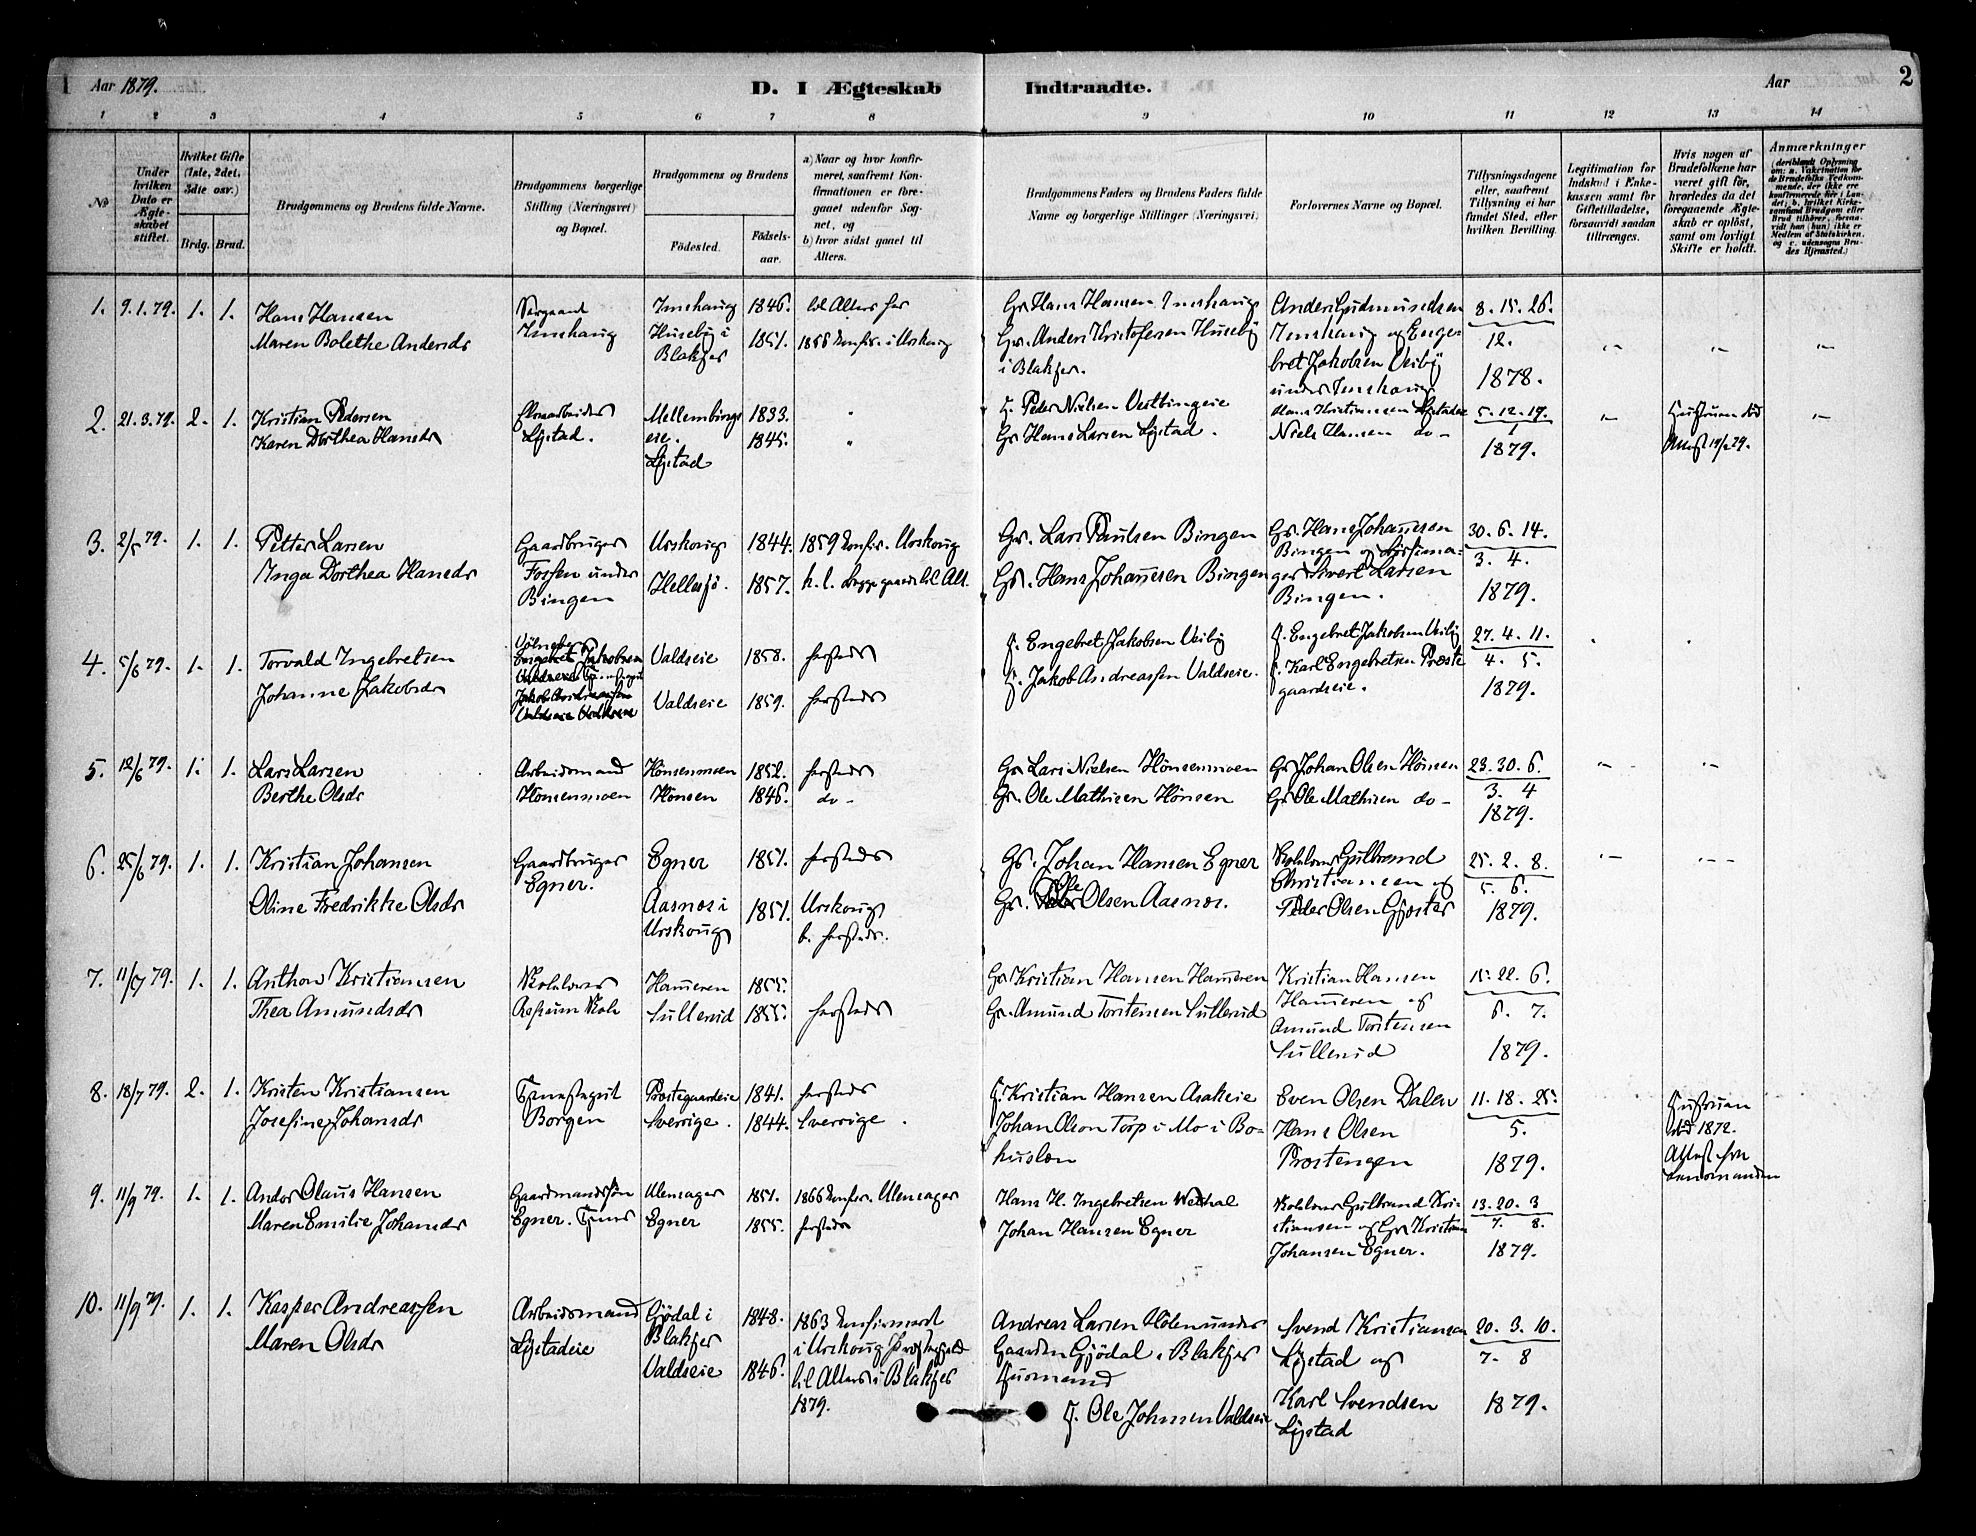 1 Aar 1879. D. I Ægteskab Indtraadte. Aar 2
1 2 3 4 5 6 7 8 9 10 11 12 13 14
№
Under hvilken Dato er Ægteskabet stiftet.
Hvilket Gifte (1ste, 2det, 3die osv.)
Brdg. Brud.
Brudgommens og Brudens fulde Navne.
Brudgommens borgerlige Stilling (Næringsvei) og Bopæl.
Brudgommens og Brudens
Födested. Födsels-aar.
a) Naar og hvor konfirmeret, saafremt Konfirmationen er foregaaet udenfor Sognet, og
b) hvor sidst gaaet til Alters.
Brudgommens Faders og Brudens Faders fulde Navne og borgerlige Stillinger (Næringsvei).
Forlovernes Navne og Bopæl.
Tillysningsdagene eller, saafremt Tillysning ei har fundet Sted, efter hvilken Bevilling.
Legitimation for Indskud i Enkekassen samt for Giftetilladelse, forsaavidt saadan tiltrænges.
Hvis nogen af Brudefolkene har været gift för, hvorledes da det foregaaende Ægteskab er oplöst, samt om lovligt Skifte er holdt.
Anmærkninger
(deriblandt Oplysning om: a. Vakcination for de Brudefolks Vedkommende, der ikke ere konfirmerede för i Landet; b. hvilket Kirkesamfund Brudgom eller Brud tilhörer, forsaavidt han (hun) ikke er Medlem af Statskirken, og c. udensogns Brudes Hjemsted.)
1. 9.1.79. 1. 1.
Hans Hansen
Maren Bolethe Andersdr
Sergeant
Imshaug
Imshaug 1846.
Huseby i Blakjer 1851.
til Alters her
1866 Konfir. i Urskoug
Gr. Hans Hansen Imshaug
Gr. Anders Kristofersen Huseby
i Blakjer.
Anders Gudmundsen
Imshaug og Enge-
bret Jakobsen Veiby
under Imshaug
8. 15. 26.
12.
1878.
2. 21.3.79. 2. 1.
Kristian Pedersen
Karen Dorthea Hansdr
Lystad.
Mellembings eie. 1833.
Lystad 1845.
Peder Nielsen Vestbingeie
Gr. Hans Larsen Lystad.
Hans Kristiansen Lystadeie
Niels Hansen do-
5. 12. 19.
1
1879.
Hustruen död
3. 2/5 79. 1. 1.
Petter Larsen
Inga Dorthea Hansdr
Gaardbruger
Fossen under
Bingen
Urskoug 1844.
Hellesjö. 1857.
1859 Konfir. Urskoug
h. l. begge gaaet til Alt.
Gr. Lars Paulsen Bingen
Gr. Hans Johannesen Bingen
Gr. Hans Johannesen
Bingen og
Sivert Larsen
Bingen.
30. 6. 14.
3. 4.
1879.
4. 5/6 79. 1. 1.
Torvald Ingebretsen
Johanne Jakobsdr
Valdseie 1858.
Valdseie 1859.
hersteds
hersteds
Engebret Jakobsen Veiby
Jakob Andreassen Valdseie.
Engebret Jakobsen Veiby
Karl Engebretsen Præste
gaardseie.
27. 4. 11.
4. 5.
1879.
5. 12/6 79. 1. 1.
Lars Larsen
Berthe Olsdr
Arbeidsmand
Hönsenmoen
Hönsenmoen 1852.
Hönsen 1846.
hersteds
do-
Gr. Lars Nielsen Hönsenmoen
Gr. Ole Mathisen Hönsen
Gr Johan Olsen Hönsen
Gr Ole Mathisen do-
23. 30. 6.
3. 4
1879.
6. 25/6 79. 1. 1.
Kristian Johansen
Oline Fredrikke Olsdr
Gaardbruger
Egner.
Egner 1851.
Aasnes i Urskoug 1851.
hersteds
Urskoug
b. hersteds.
Gr. Johan Hansen Egner
Gr. Ole Olsen Aasnes.
Kirkel. Gulbrand
Christiansen og
Peder Olsen Gjæster
25. 2. 8.
5. 6.
1879.
7. 11/7 79. 1. 1.
Anthon Kristiansen
Thea Amundsdr
Skolelærer
Hameren 1855.
Sullerud 1855.
hersteds
Gr. Kristian Hansen Hameren
Gr. Amund Torstensen Sullerud
Kristian Hansen
Hameren og
Amund Torstensen
Sullerud
15. 22. 6.
6. 7.
1879.
8. 18/7 79. 2. 1.
Kristen Kristiansen
Josefine Johansdr
Borgen
Præstegaardeie 1841.
Sverrige. 1844.
hersteds
Sverrige.
Kristian Hansen Asakeie
Johan Olson Torp i Mo i Bo-
huslæn
Even Olsen Dalen
Hans Olsen
Præstengen
11. 18. 25.
5.
1879.
Hustruen
död 1872.
Attest fra
Lensmanden
9. 11/9 79. 1. 1.
Andor Olaus Hansen
Maren Emilie Johansdr
Gaardmandssön
Egner.
Ulensager 1851.
Egner 1855.
1866 Konfir. Ulensager
hersteds
Hans H. Ingebretsen
Johan Hansen Egner
Gulbrand Kri-
stiansen og Gr Kristian
Johansen Egner.
13. 20. 3
7. 8.
1879.
10. 11/9 79. 1. 1.
Kasper Andreassen
Maren Olsdr
Arbeidsmand
Lystadeie
Gjödal i Blakjer 1848.
Valdseie 1846.
1863 Konfirmert
i Urskoug Præstegjeld
til Alters i Blakjer
1879.
Andreas Larsen Holen under
Gaarden Gjödal i Blakjer
Husmand
Ole Johnsen Valdseie
Svend Kristiansen
Lystad og
Karl Svendsen
Lystad
20. 3. 10.
7. 8
1879.